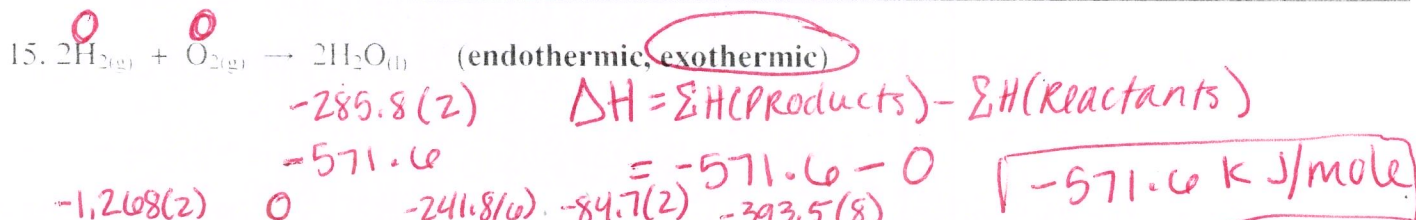 0 0
15. 2H₂(g) + O₂(g) → 2H₂O(l) (endothermic, exothermic)
-285.8(2) ΔH = ΣH(Products) - ΣH(Reactants)
-571.6 = -571.6 - 0 -571.6 kJ/mole
-1,268(2) 0 -241.8(6) -84.7(2) -393.5(8)